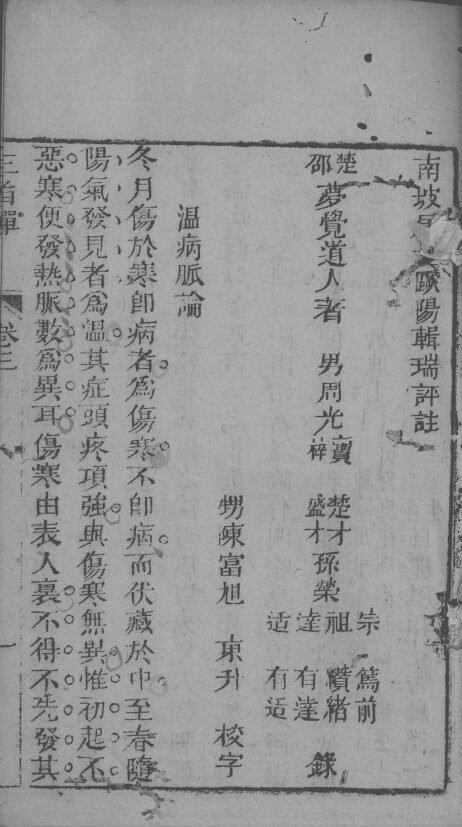 南坡居歐陽輯瑞評註
楚邵夢覺道人著 男周光寶梓 楚才盛才孫榮祖達适 宗纘緒有達有适 篤前 錄
甥陳富旭 東升 校字
溫病脈論
冬月傷於寒卽病者爲傷寒不卽病而伏藏於中至春隨
陽氣發見者爲溫其症頭疼項強與傷寒無異惟初起不
惡寒便發熱脈數爲異耳傷寒由表入裏不得不先發其
三指禪 卷三 一